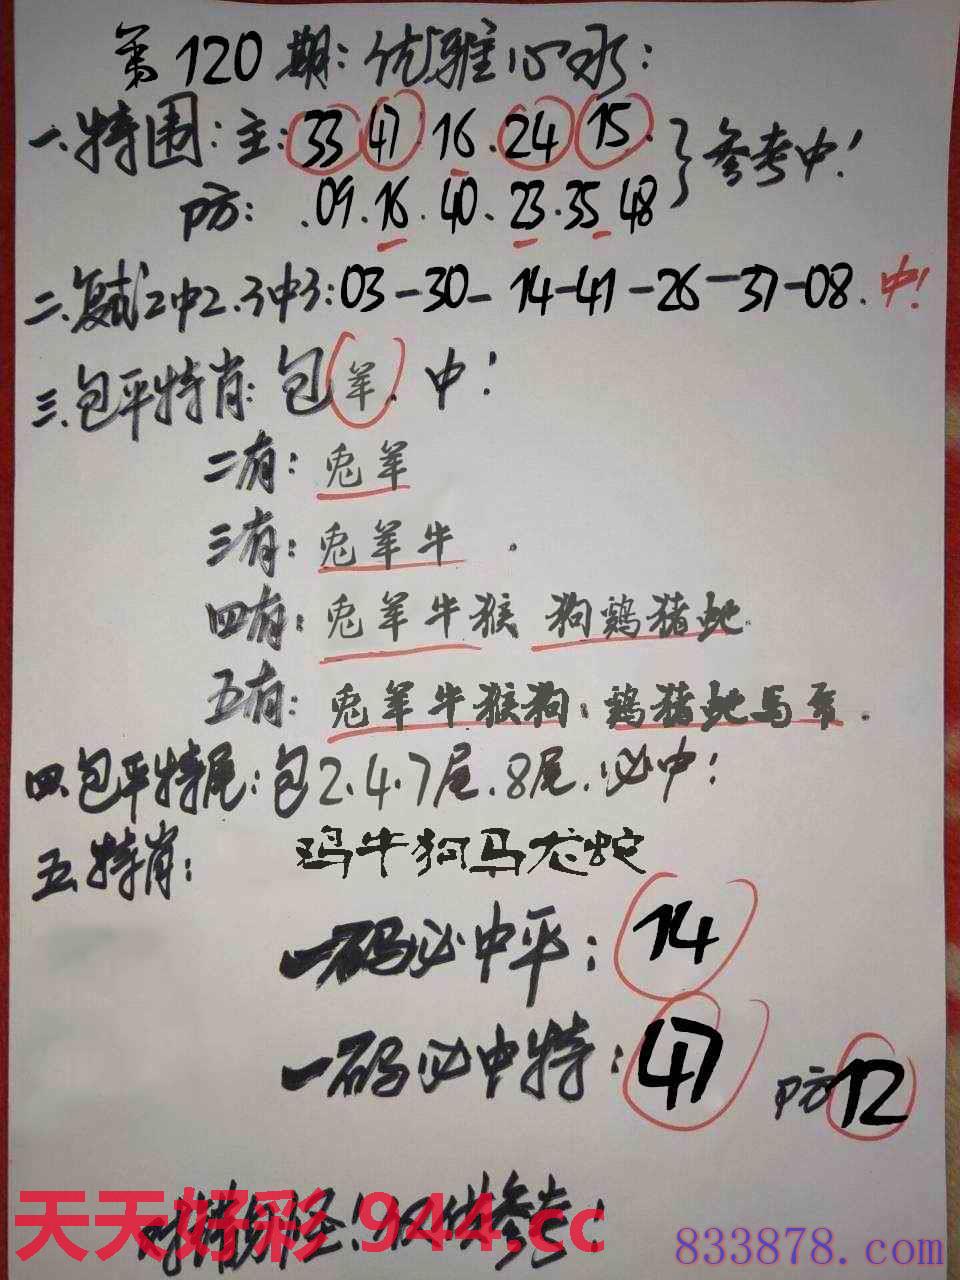 第120期:优雅心水:
一.特围:主:33 47 16.24 15. 参考中!
防: .09.16.40.23.35 48
二.复式2中2.3中3:03-30-14-41-26-37-08.中!
三.包平特肖:包羊.中!
二有:兔羊
三有:兔羊牛.
四有:兔羊牛猴 狗鸡猪蛇.
五有:兔羊牛猴狗:鸡猪蛇马.
四.包平特尾:包2.4.7尾.8尾.必中!
五.特肖: 鸡牛狗马龙蛇
一码必中平:14
一码必中特:47 防12
仅供参考!
天天好彩 944.cc
833878.com